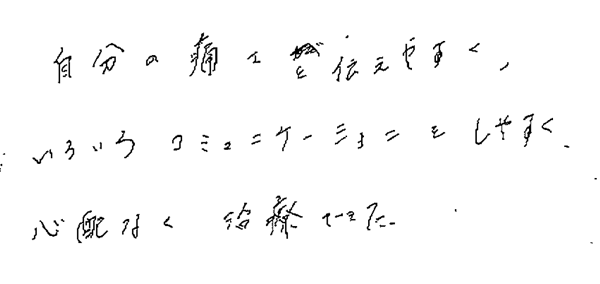 自分の痛みを伝えやすく、
いろいろコミュニケーションをしやすく、
心配なく 治療できた。